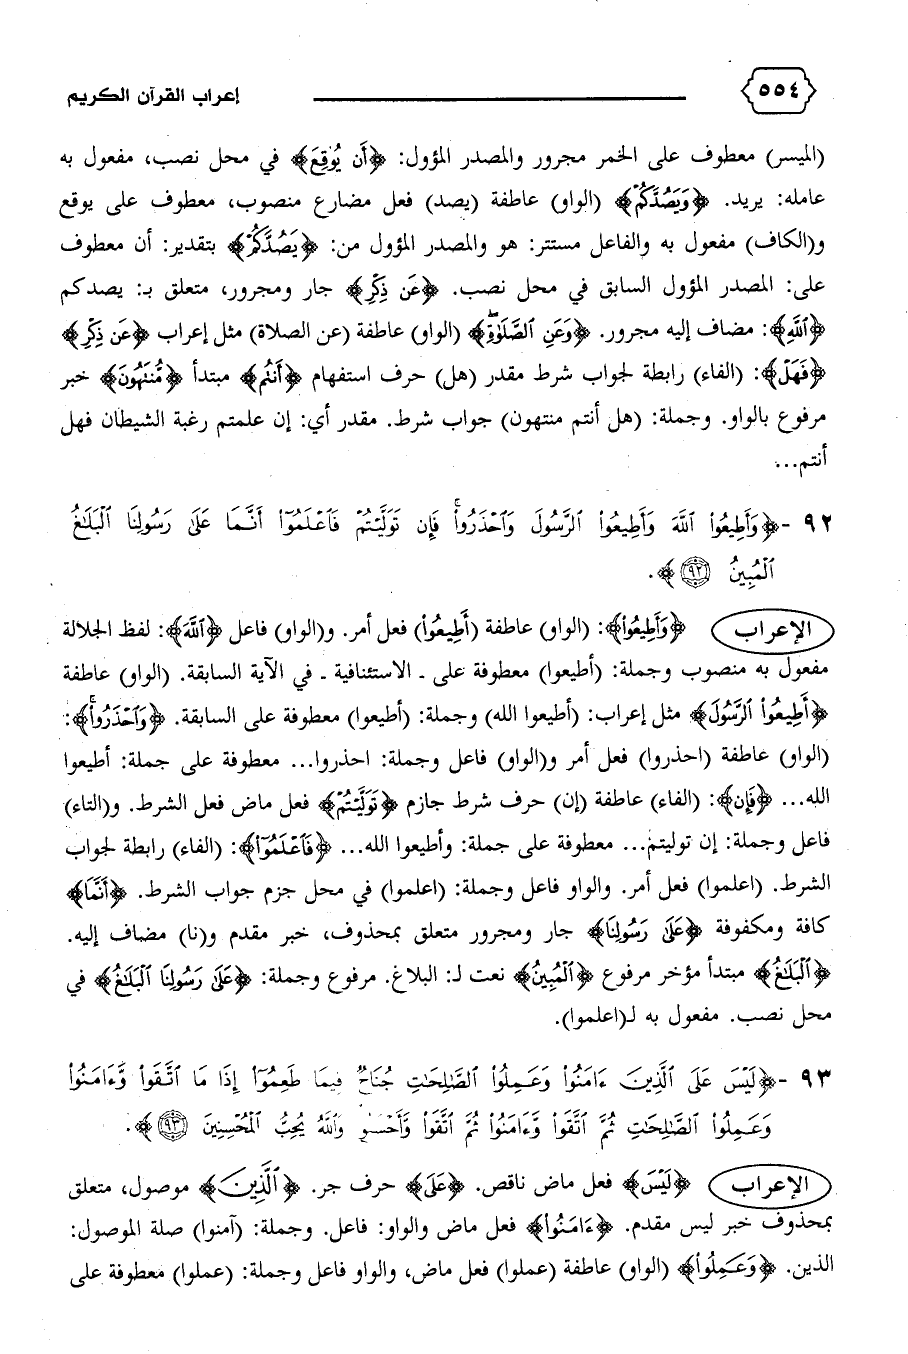 ٥٥٤ إعراب القرآن الكريم
(الميسر) معطوف على الخمر مجرور والمصدر المؤول: ﴿أَن يُوقِعَ﴾ في محل نصب، مفعول به
عامله: يريد. ﴿وَيَصُدَّكُمْ﴾ (الواو) عاطفة (يصد) فعل مضارع منصوب، معطوف على يوقع
و(الكاف) مفعول به والفاعل مستتر: هو والمصدر المؤول من: ﴿يَصُدَّكُمْ﴾ بتقدير: أن معطوف
على: المصدر المؤول السابق في محل نصب. ﴿عَن ذِكْرِ﴾ جار ومجرور، متعلق بـ: يصدكم
﴿ٱللَّهِ﴾: مضاف إليه مجرور. ﴿وَعَنِ ٱلصَّلَوٰةِ﴾ (الواو) عاطفة (عن الصلاة) مثل إعراب ﴿عَن ذِكْرِ﴾
﴿فَهَلْ﴾: (الفاء) رابطة لجواب شرط مقدر (هل) حرف استفهام ﴿أَنتُم﴾ مبتدأ ﴿مُّنتَهُونَ﴾ خبر
مرفوع بالواو. وجملة: (هل أنتم منتهون) جواب شرط. مقدر أي: إن علمتم رغبة الشيطان فهل
أنتم...
٩٢ - ﴿وَأَطِيعُوا۟ ٱللَّهَ وَأَطِيعُوا۟ ٱلرَّسُولَ وَٱحْذَرُوا۟ۚ فَإِن تَوَلَّيْتُمْ فَٱعْلَمُوٓا۟ أَنَّمَا عَلَىٰ رَسُولِنَا ٱلْبَلَٰغُ
ٱلْمُبِينُ ٩٢﴾.
الإعراب ﴿وَأَطِيعُوا۟﴾: (الواو) عاطفة (أَطِيعُوا۟) فعل أمر. و(الواو) فاعل ﴿ٱللَّهَ﴾: لفظ الجلالة
مفعول به منصوب وجملة: (أطيعوا) معطوفة على ـ الاستئنافية ـ في الآية السابقة. (الواو) عاطفة
﴿أَطِيعُوا۟ ٱلرَّسُولَ﴾ مثل إعراب: (أطيعوا الله) وجملة: (أطيعوا) معطوفة على السابقة. ﴿وَٱحْذَرُوا۟ۚ﴾:
(الواو) عاطفة (احذروا) فعل أمر و(الواو) فاعل وجملة: احذروا... معطوفة على جملة: أطيعوا
الله... ﴿فَإِن﴾: (الفاء) عاطفة (إن) حرف شرط جازم ﴿تَوَلَّيْتُمْ﴾ فعل ماض فعل الشرط. و(التاء)
فاعل وجملة: إن توليتم... معطوفة على جملة: وأطيعوا الله... ﴿فَٱعْلَمُوٓا۟﴾: (الفاء) رابطة لجواب
الشرط. (اعلموا) فعل أمر. والواو فاعل وجملة: (اعلموا) في محل جزم جواب الشرط. ﴿أَنَّمَا﴾
كافة ومكفوفة ﴿عَلَىٰ رَسُولِنَا﴾ جار ومجرور متعلق بمحذوف، خبر مقدم و(نا) مضاف إليه.
﴿ٱلْبَلَٰغُ﴾ مبتدأ مؤخر مرفوع ﴿ٱلْمُبِينُ﴾ نعت لـ: البلاغ. مرفوع وجملة: ﴿عَلَىٰ رَسُولِنَا ٱلْبَلَٰغُ﴾ في
محل نصب. مفعول به لـ(اعلموا).
٩٣ - ﴿لَيْسَ عَلَى ٱلَّذِينَ ءَامَنُوا۟ وَعَمِلُوا۟ ٱلصَّٰلِحَٰتِ جُنَاحٌ فِيمَا طَعِمُوٓا۟ إِذَا مَا ٱتَّقَوا۟ وَّءَامَنُوا۟
وَعَمِلُوا۟ ٱلصَّٰلِحَٰتِ ثُمَّ ٱتَّقَوا۟ وَّءَامَنُوا۟ ثُمَّ ٱتَّقَوا۟ وَّأَحْسَنُوا۟ وَٱللَّهُ يُحِبُّ ٱلْمُحْسِنِينَ ٩٣﴾.
الإعراب ﴿لَيْسَ﴾ فعل ماض ناقص. ﴿عَلَى﴾ حرف جر. ﴿ٱلَّذِينَ﴾ موصول، متعلق
بمحذوف خبر ليس مقدم. ﴿ءَامَنُوا۟﴾ فعل ماض والواو: فاعل. وجملة: (آمنوا) صلة الموصول:
الذين. ﴿وَعَمِلُوا۟﴾ (الواو) عاطفة (عملوا) فعل ماض، والواو فاعل وجملة: (عملوا) معطوفة على